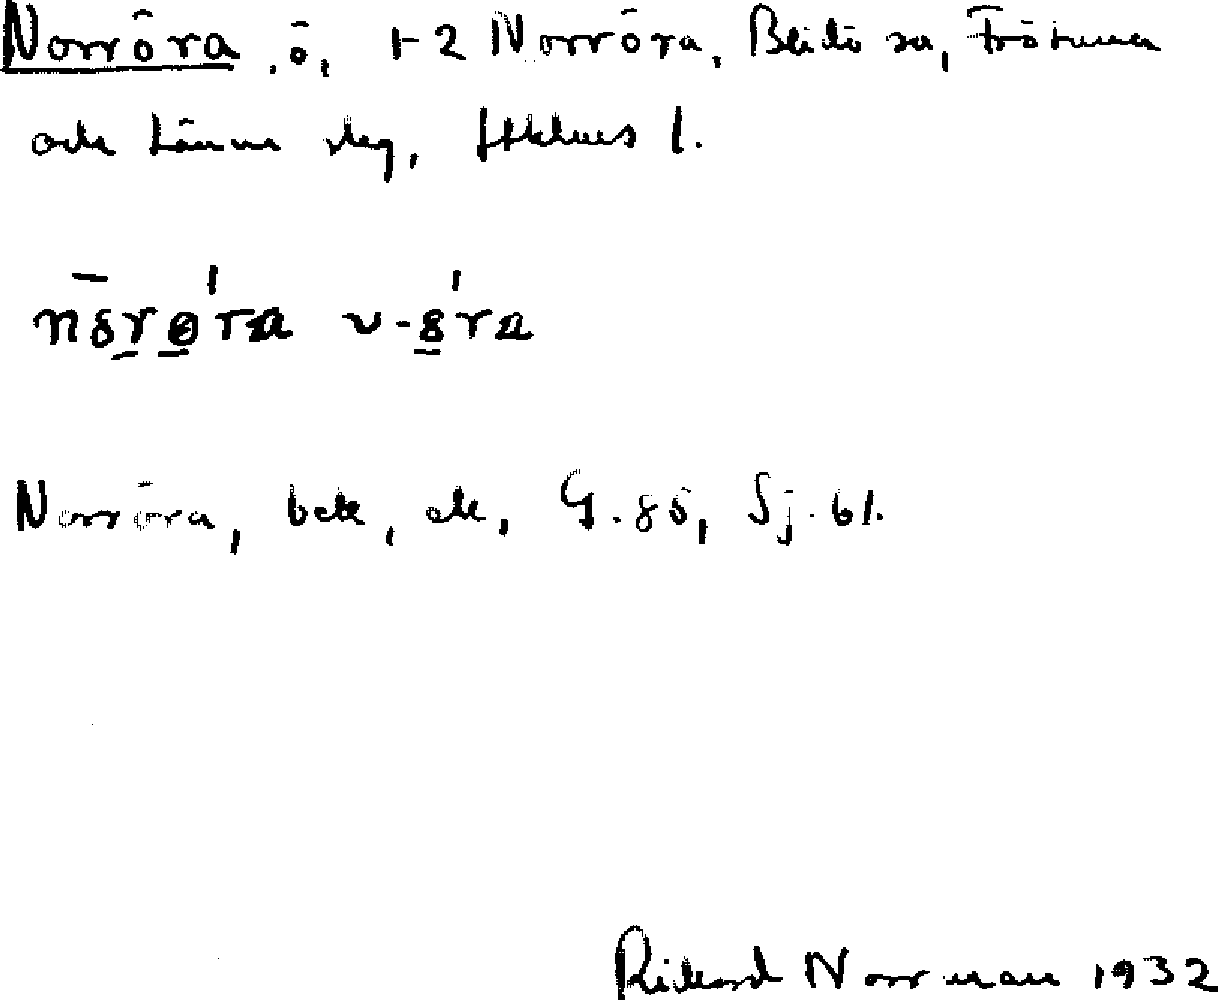 Norröra, ö, 1-2 Norröra, Blidö sn, Frötuna
och Länna slag, Sthlms l.
Norröra, beb, ek, G. 85, Sj. 61.
Rickard Norrman 1932